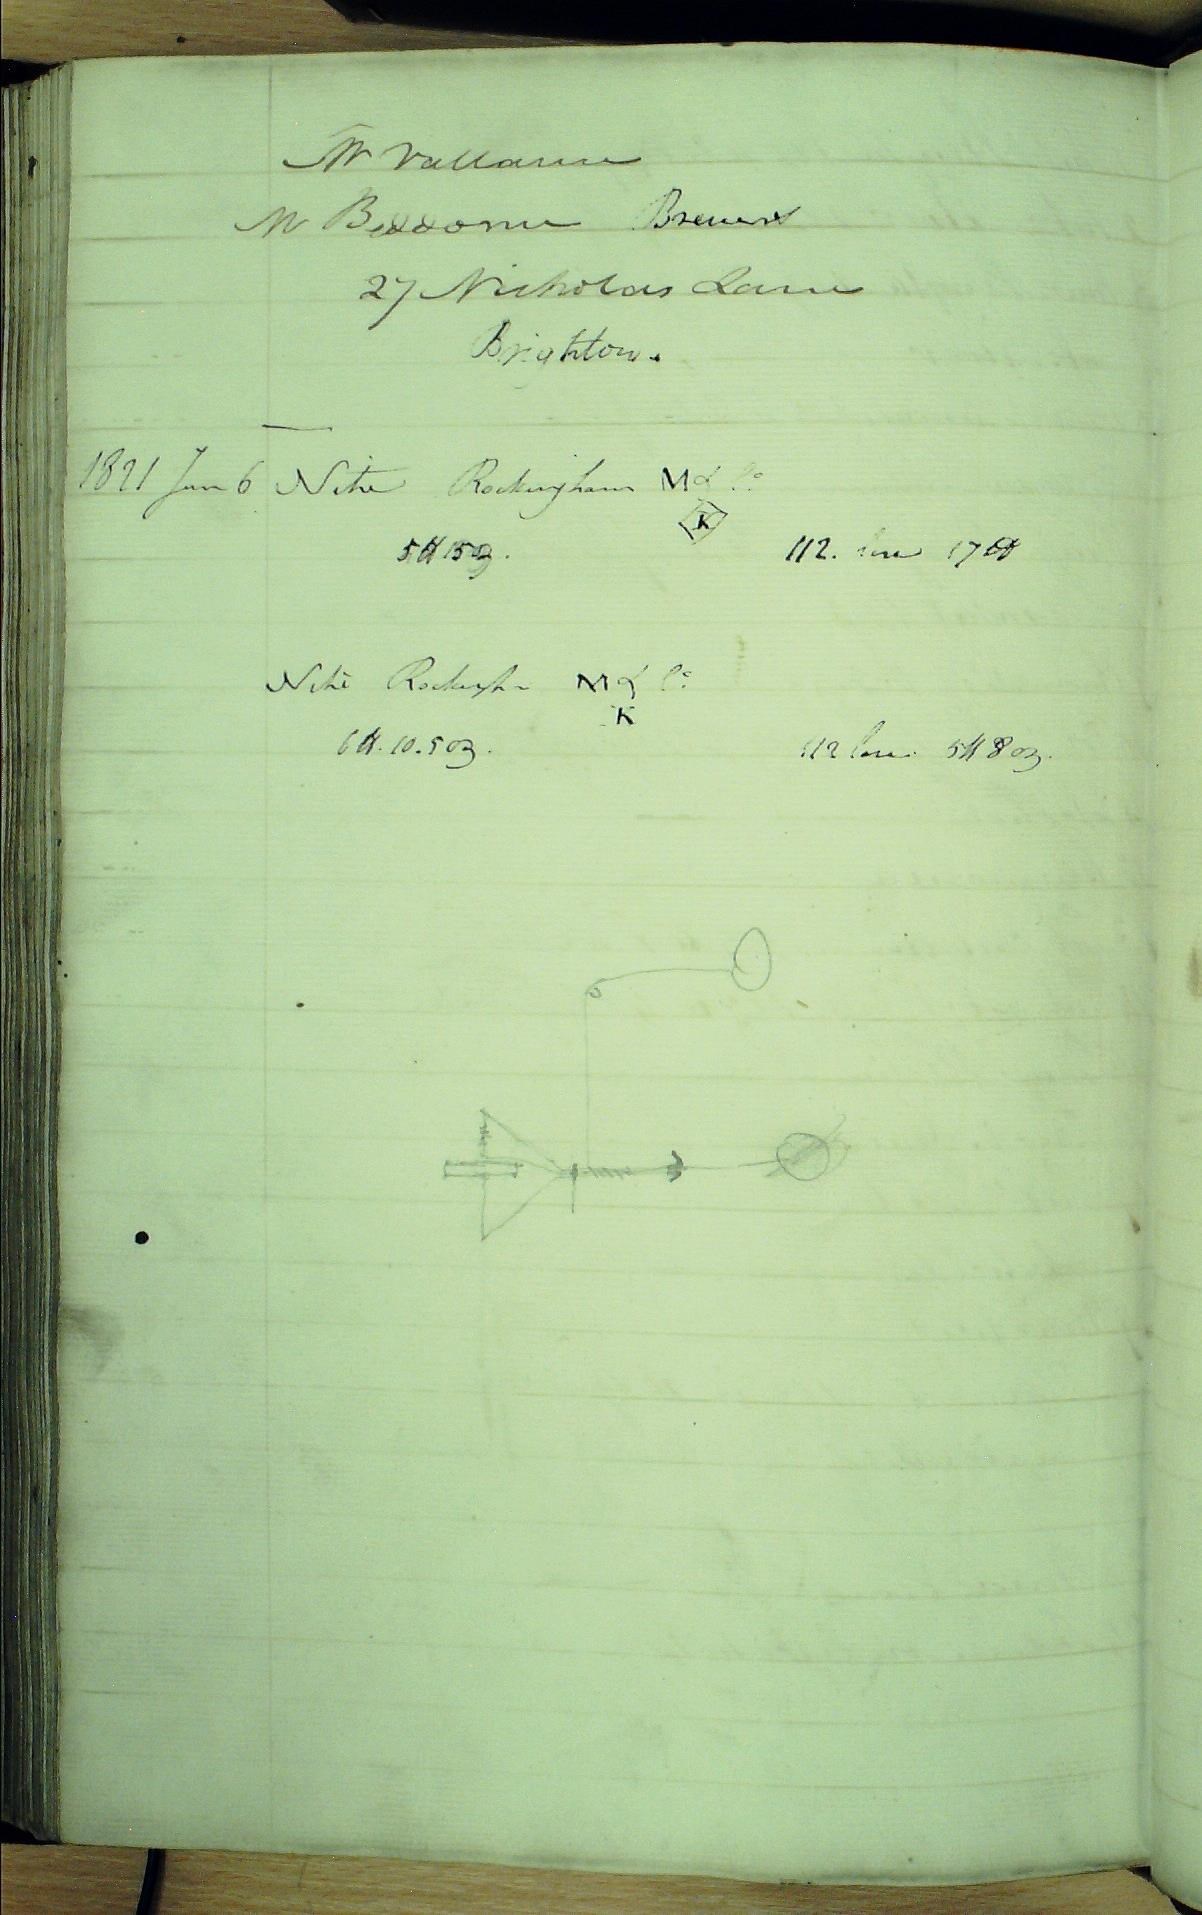 Mr Vallance
Mr Beddome Brewers
27 Nicholas Lane
Brighton.
1821 Jan 6 Nitre Rockingham M & Co
K
5 ℔ 15 oz. 112. lose 17 ℔
Nitre Rockingh M & Co
K
6 ℔. 10.5 oz. 112 lose 5 ℔ 8 oz.